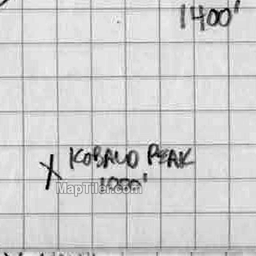 1400'
X KOBALD PEAK
1000'
MapTiler.com